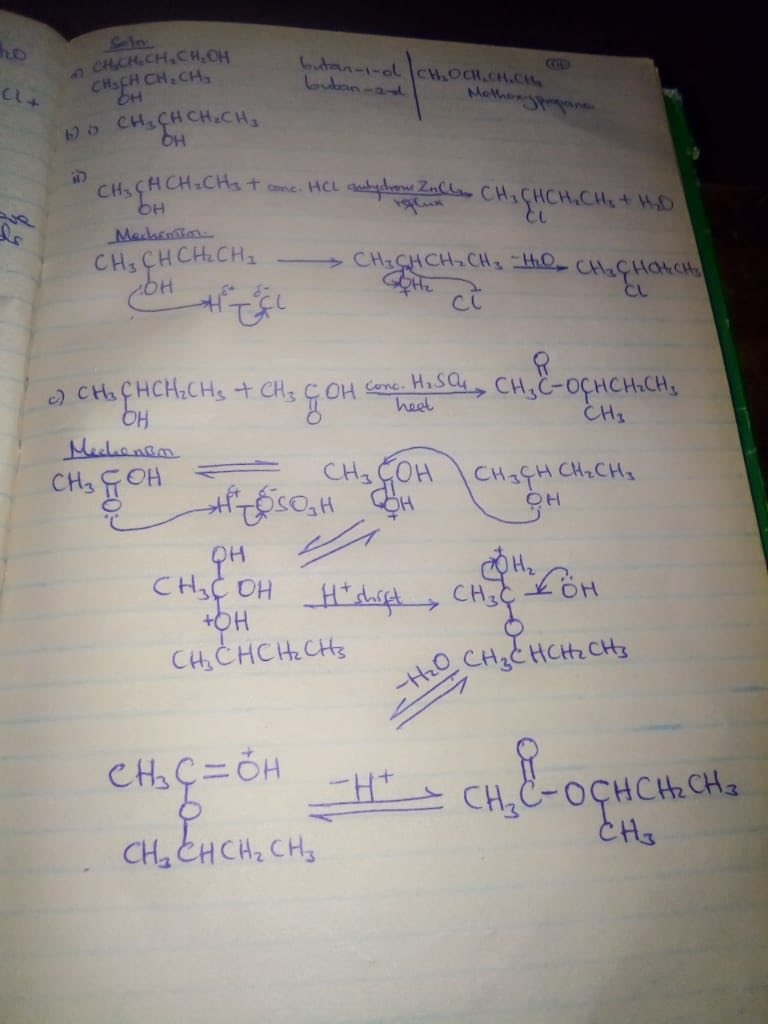 Soln:
a) CH₃CH₂CH₂CH₂OH butan-1-ol CH₃OCH₂CH₂CH₃
CH₃CHCH₂CH₃ butan-2-ol Methoxypropane
OH
b) i) CH₃CHCH₂CH₃
OH
ii) CH₃CHCH₂CH₃ + conc. HCl anhydrous ZnCl₂ reflux CH₃CHCH₂CH₃ + H₂O
OH Cl
Mechanism:
CH₃CHCH₂CH₃ → CH₃CHCH₂CH₃ -H₂O → CH₃CHCH₂CH₃
:OH H δ+ δ- Cl OH₂ + Cl Cl
O
c) CH₃CHCH₂CH₃ + CH₃COH conc. H₂SO₄ heat → CH₃C-OCHCH₂CH₃
OH O CH₃
Mechanism
CH₃COH ⇌ CH₃COH CH₃CHCH₂CH₃
O H δ+ δ- OSO₃H OH + OH
OH +OH₂
CH₃COH H⁺ shift → CH₃C-ÖH
+OH O
CH₃CHCH₂CH₃ CH₃CHCH₂CH₃
-H₂O
CH₃C=OH + -H⁺ ⇌ CH₃C-OCHCH₂CH₃
O O CH₃
CH₃CHCH₂CH₃